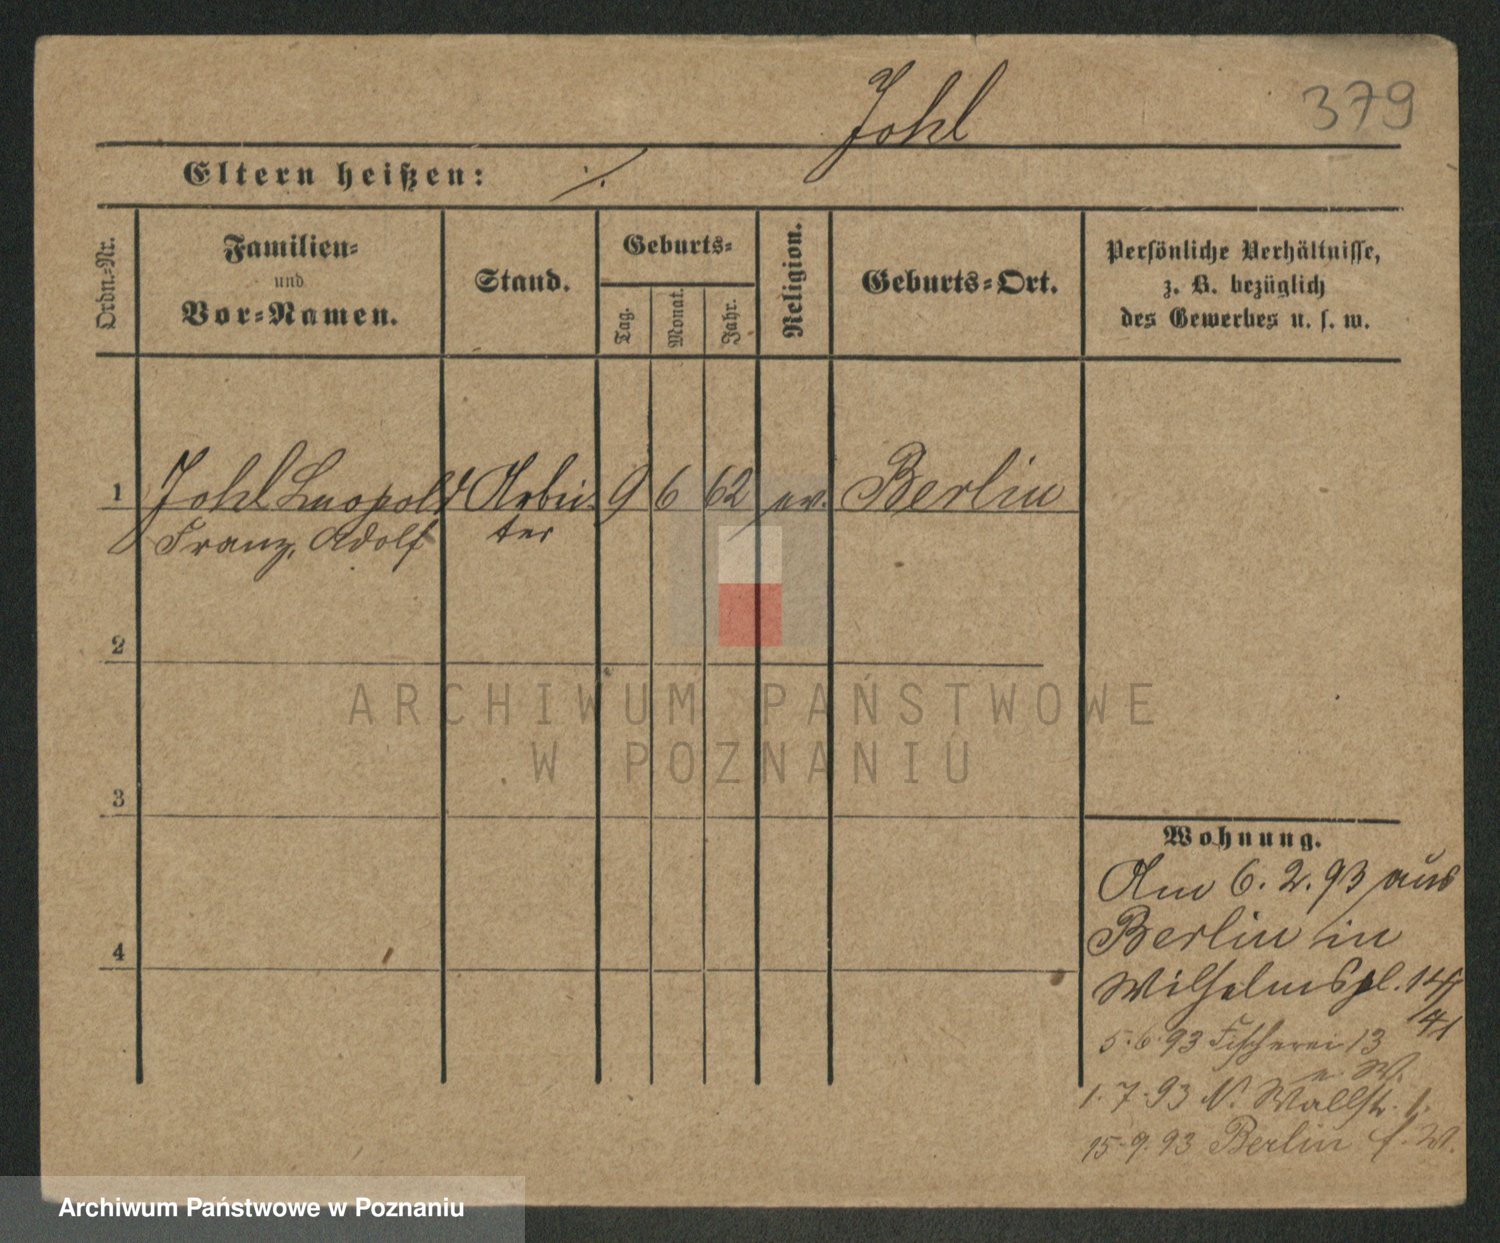 Johl 379
Eltern heißen: ./.
Ordn.-Nr.
Familien-
und
Vor-Namen.
Stand.
Geburts-
Tag.
Monat.
Jahr.
Religion.
Geburts-Ort.
Persönliche Verhältnisse,
z. B. bezüglich
des Gewerbes u. s. w.
1 Johl Leopold Arbei- 9 6 62 ev. Berlin
Franz, Adolf ter
2
ARCHIWUM PAŃSTWOWE
W POZNANIU
3
Wohnung.
Am 6. 2. 93 aus
Berlin in
4
Wilhelmspl. 14/
5. 6. 93 Fischerei 13
1. 7. 93 N. Wallstr. 1.
15. 9. 93 Berlin
Archiwum Państwowe w Poznaniu